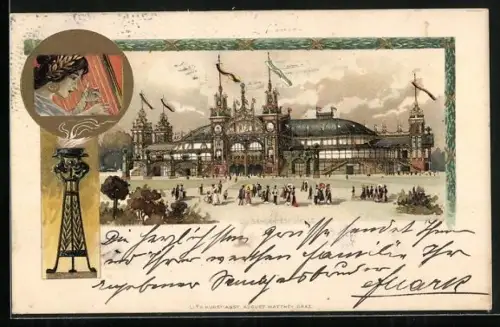 Die herzlichsten Grüsse sendet Ihnen
und Ihrer werthen Familie Ihr
ergebener Sangesbruder
Quark
LITH. KUNSTANST. AUGUST MATTHEY, GRAZ